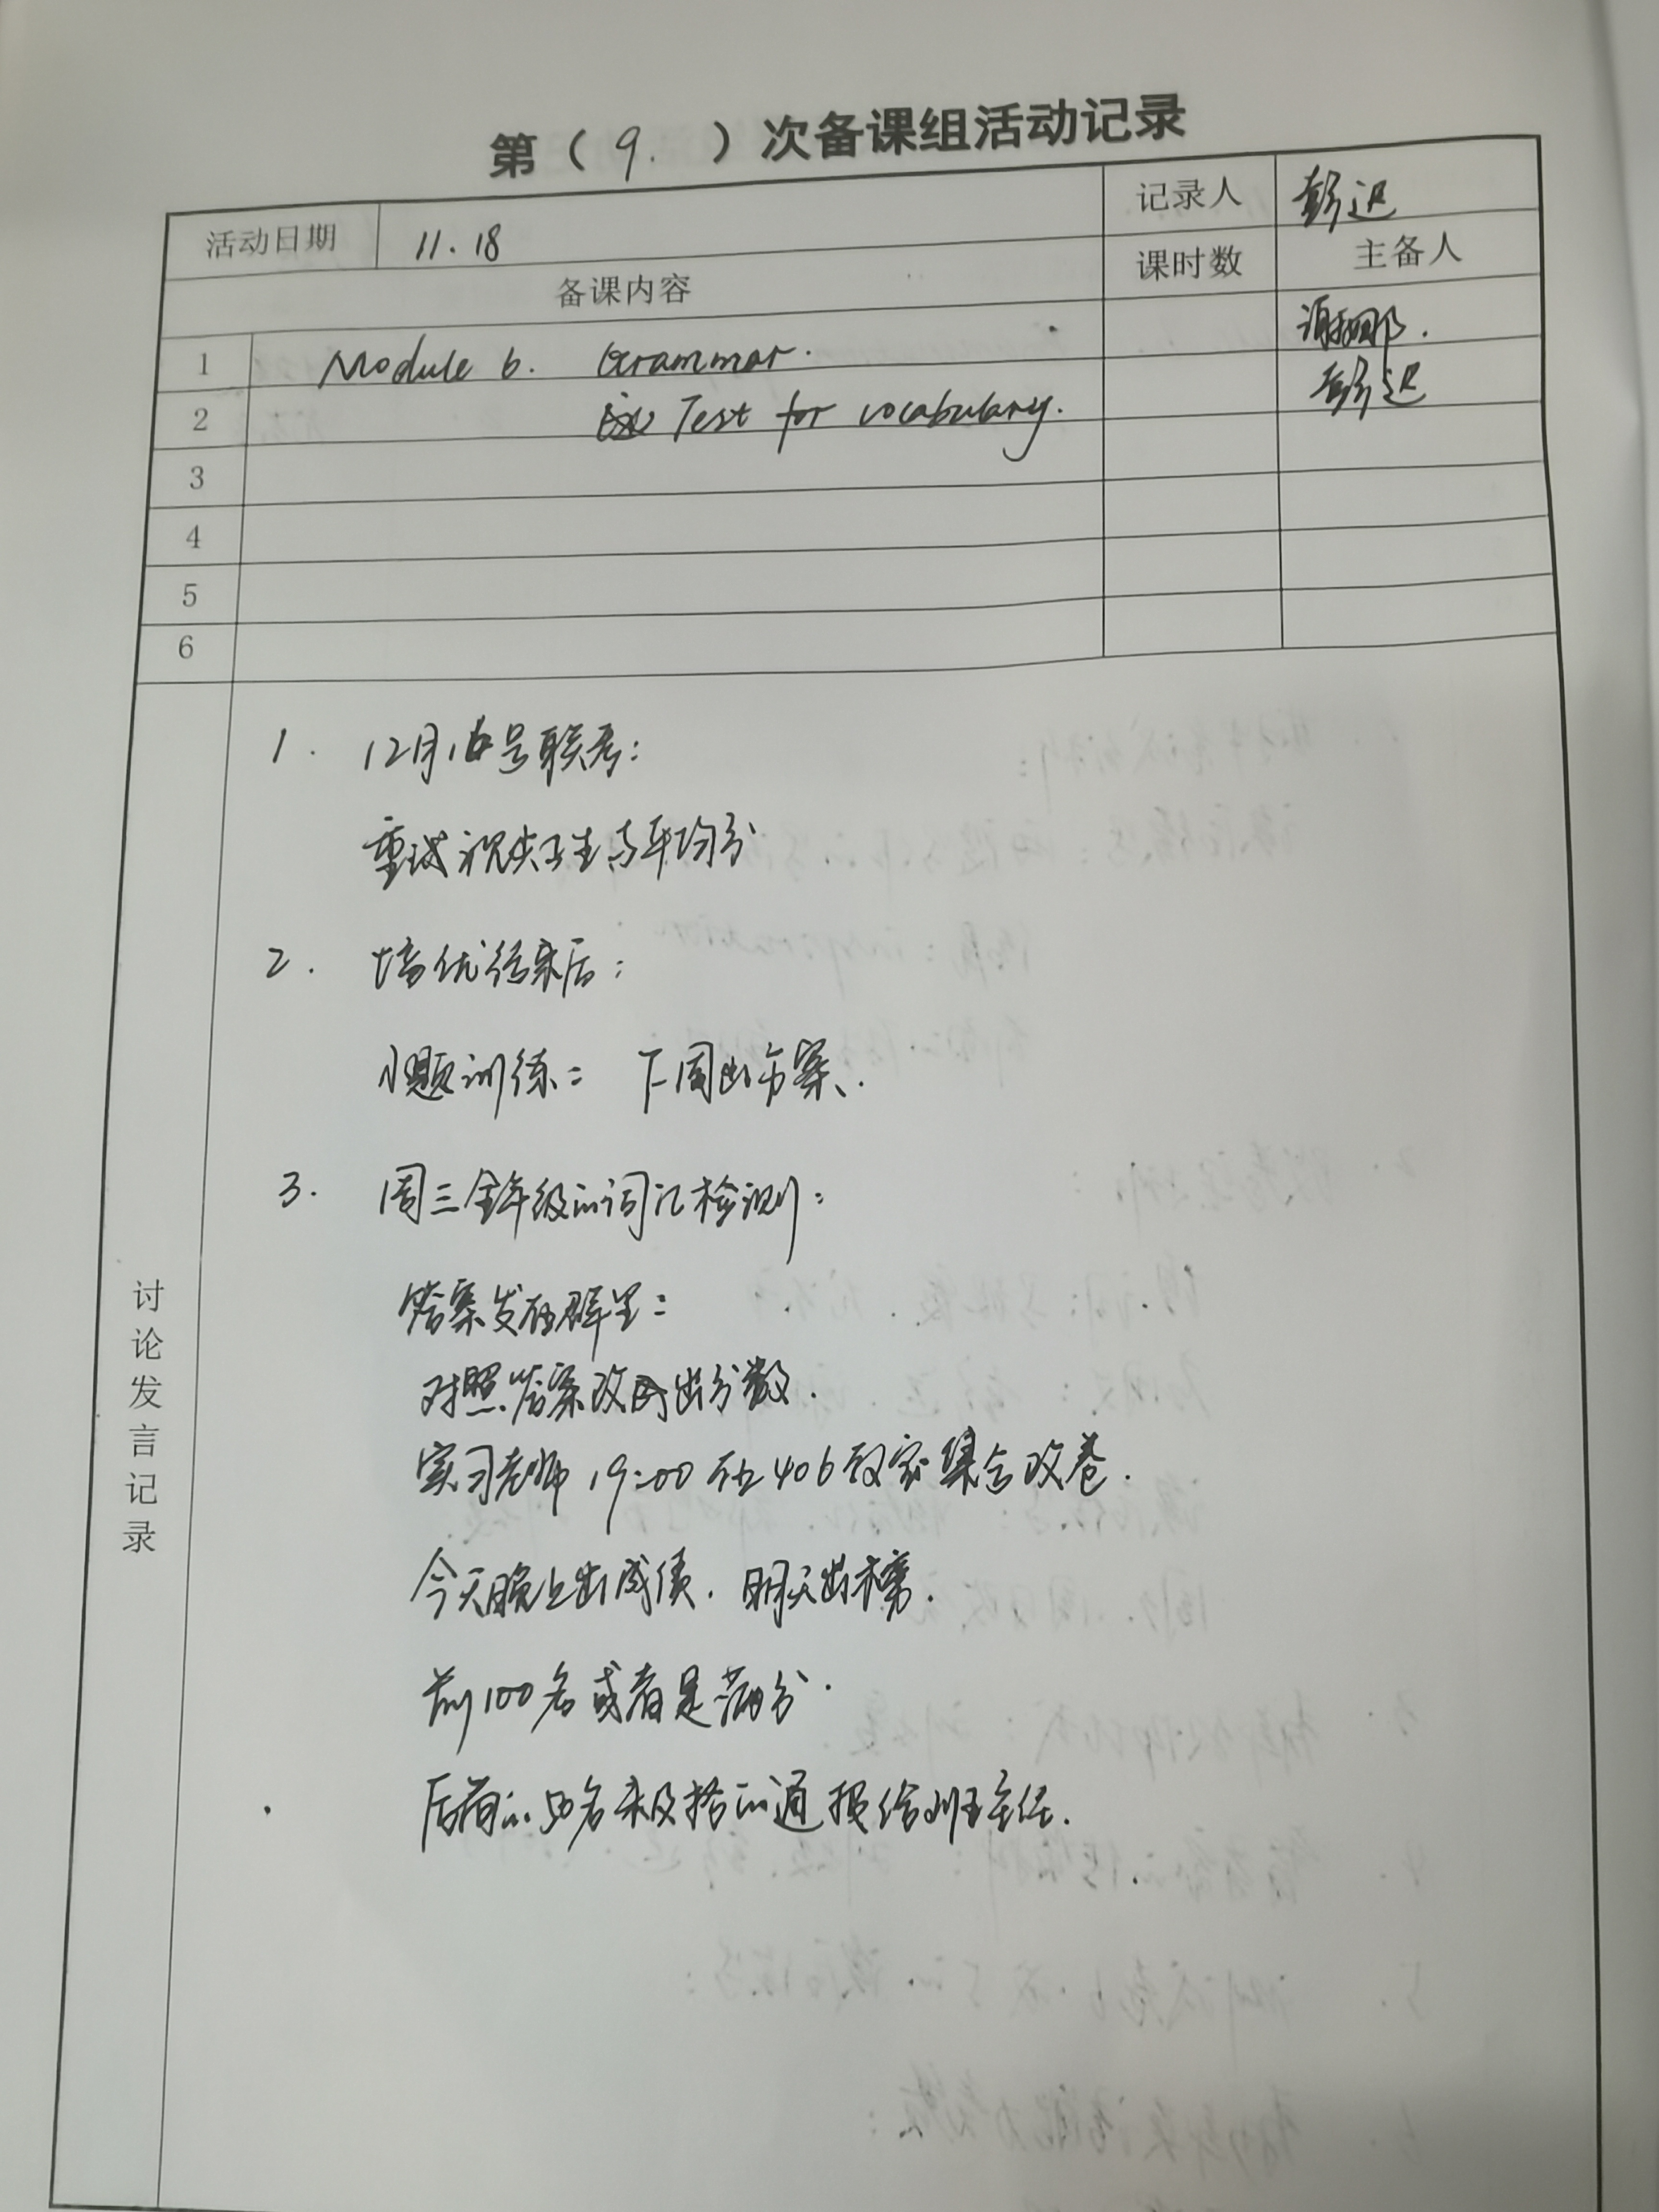 第（ 9. ）次备课组活动记录
活动日期 11.18 记录人 彭迟
备课内容 课时数 主备人
1 Module 6. Grammar. 谢娜.
2 Test for vocabulary. 彭迟
3
4
5
6
讨论发言记录
1. 12月16号联考：
重视尖子生与平均分
2. 培优结束后：
小题训练： 下周出方案.
3. 周三全年级的词汇检测：
答案发在群里：
对照答案改出分数.
实习老师 19:00 在 406 教室集合改卷.
今天晚上出成绩. 明天出榜.
前100名或者是满分.
后面的50名未及格的通报给班主任.